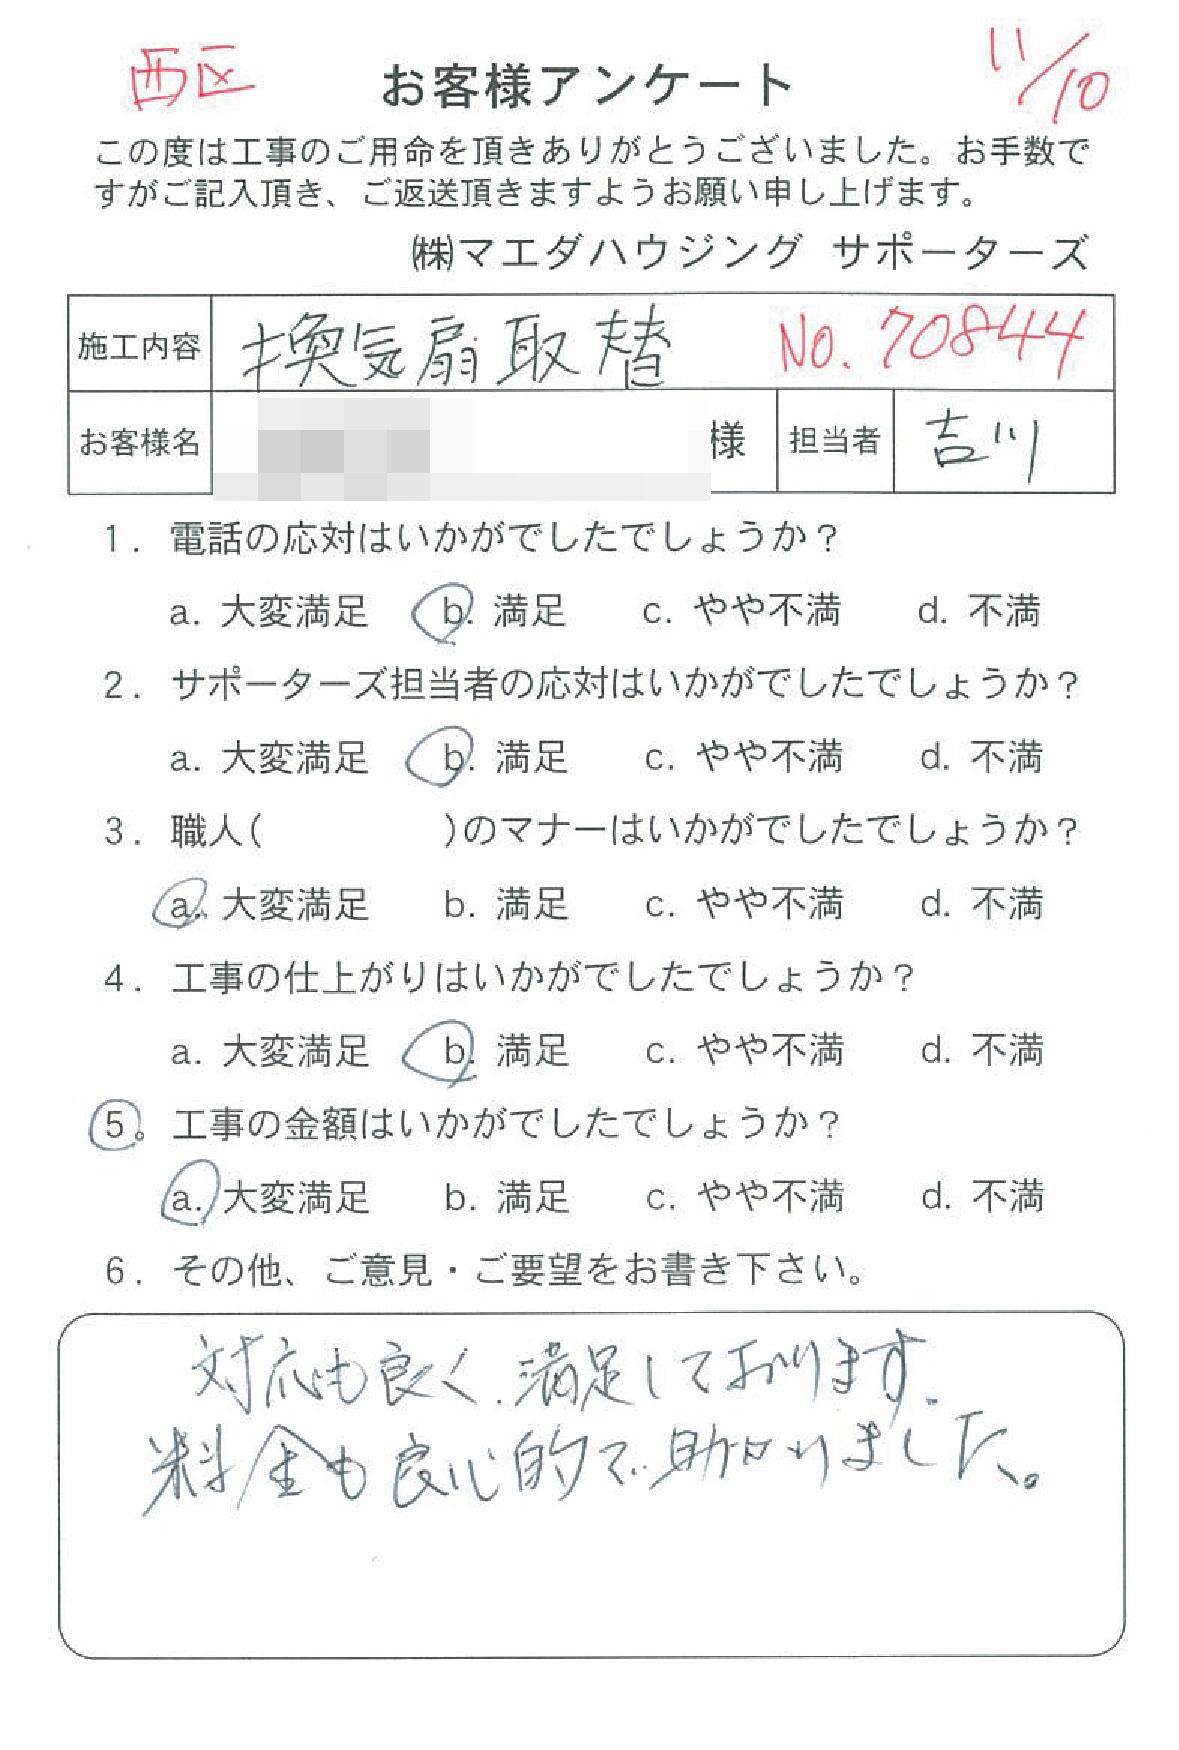 西区 お客様アンケート 11/10
この度は工事のご用命を頂きありがとうございました。お手数で
すがご記入頂き、ご返送頂きますようお願い申し上げます。
㈱マエダハウジング サポーターズ
施工内容 換気扇取替 No.70844
お客様名 様 担当者 吉川
1. 電話の応対はいかがでしたでしょうか？
a. 大変満足 b. 満足 c. やや不満 d. 不満
2. サポーターズ担当者の応対はいかがでしたでしょうか？
a. 大変満足 b. 満足 c. やや不満 d. 不満
3. 職人( )のマナーはいかがでしたでしょうか？
a. 大変満足 b. 満足 c. やや不満 d. 不満
4. 工事の仕上がりはいかがでしたでしょうか？
a. 大変満足 b. 満足 c. やや不満 d. 不満
5. 工事の金額はいかがでしたでしょうか？
a. 大変満足 b. 満足 c. やや不満 d. 不満
6. その他、ご意見・ご要望をお書き下さい。
対応も良く、満足しております。
料金も良心的で助かりました。